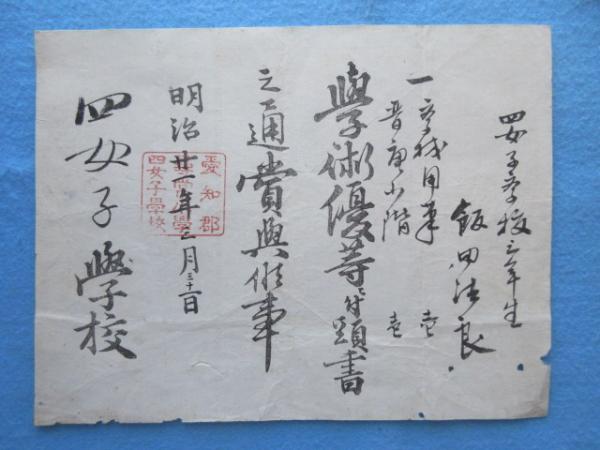 四女子学校三年生
飯田法良
壱
壱
學術優等ニ付頭書
之通賞與候事
明治廿一年三月三十一日
愛知郡
四女子學校
四女子學校